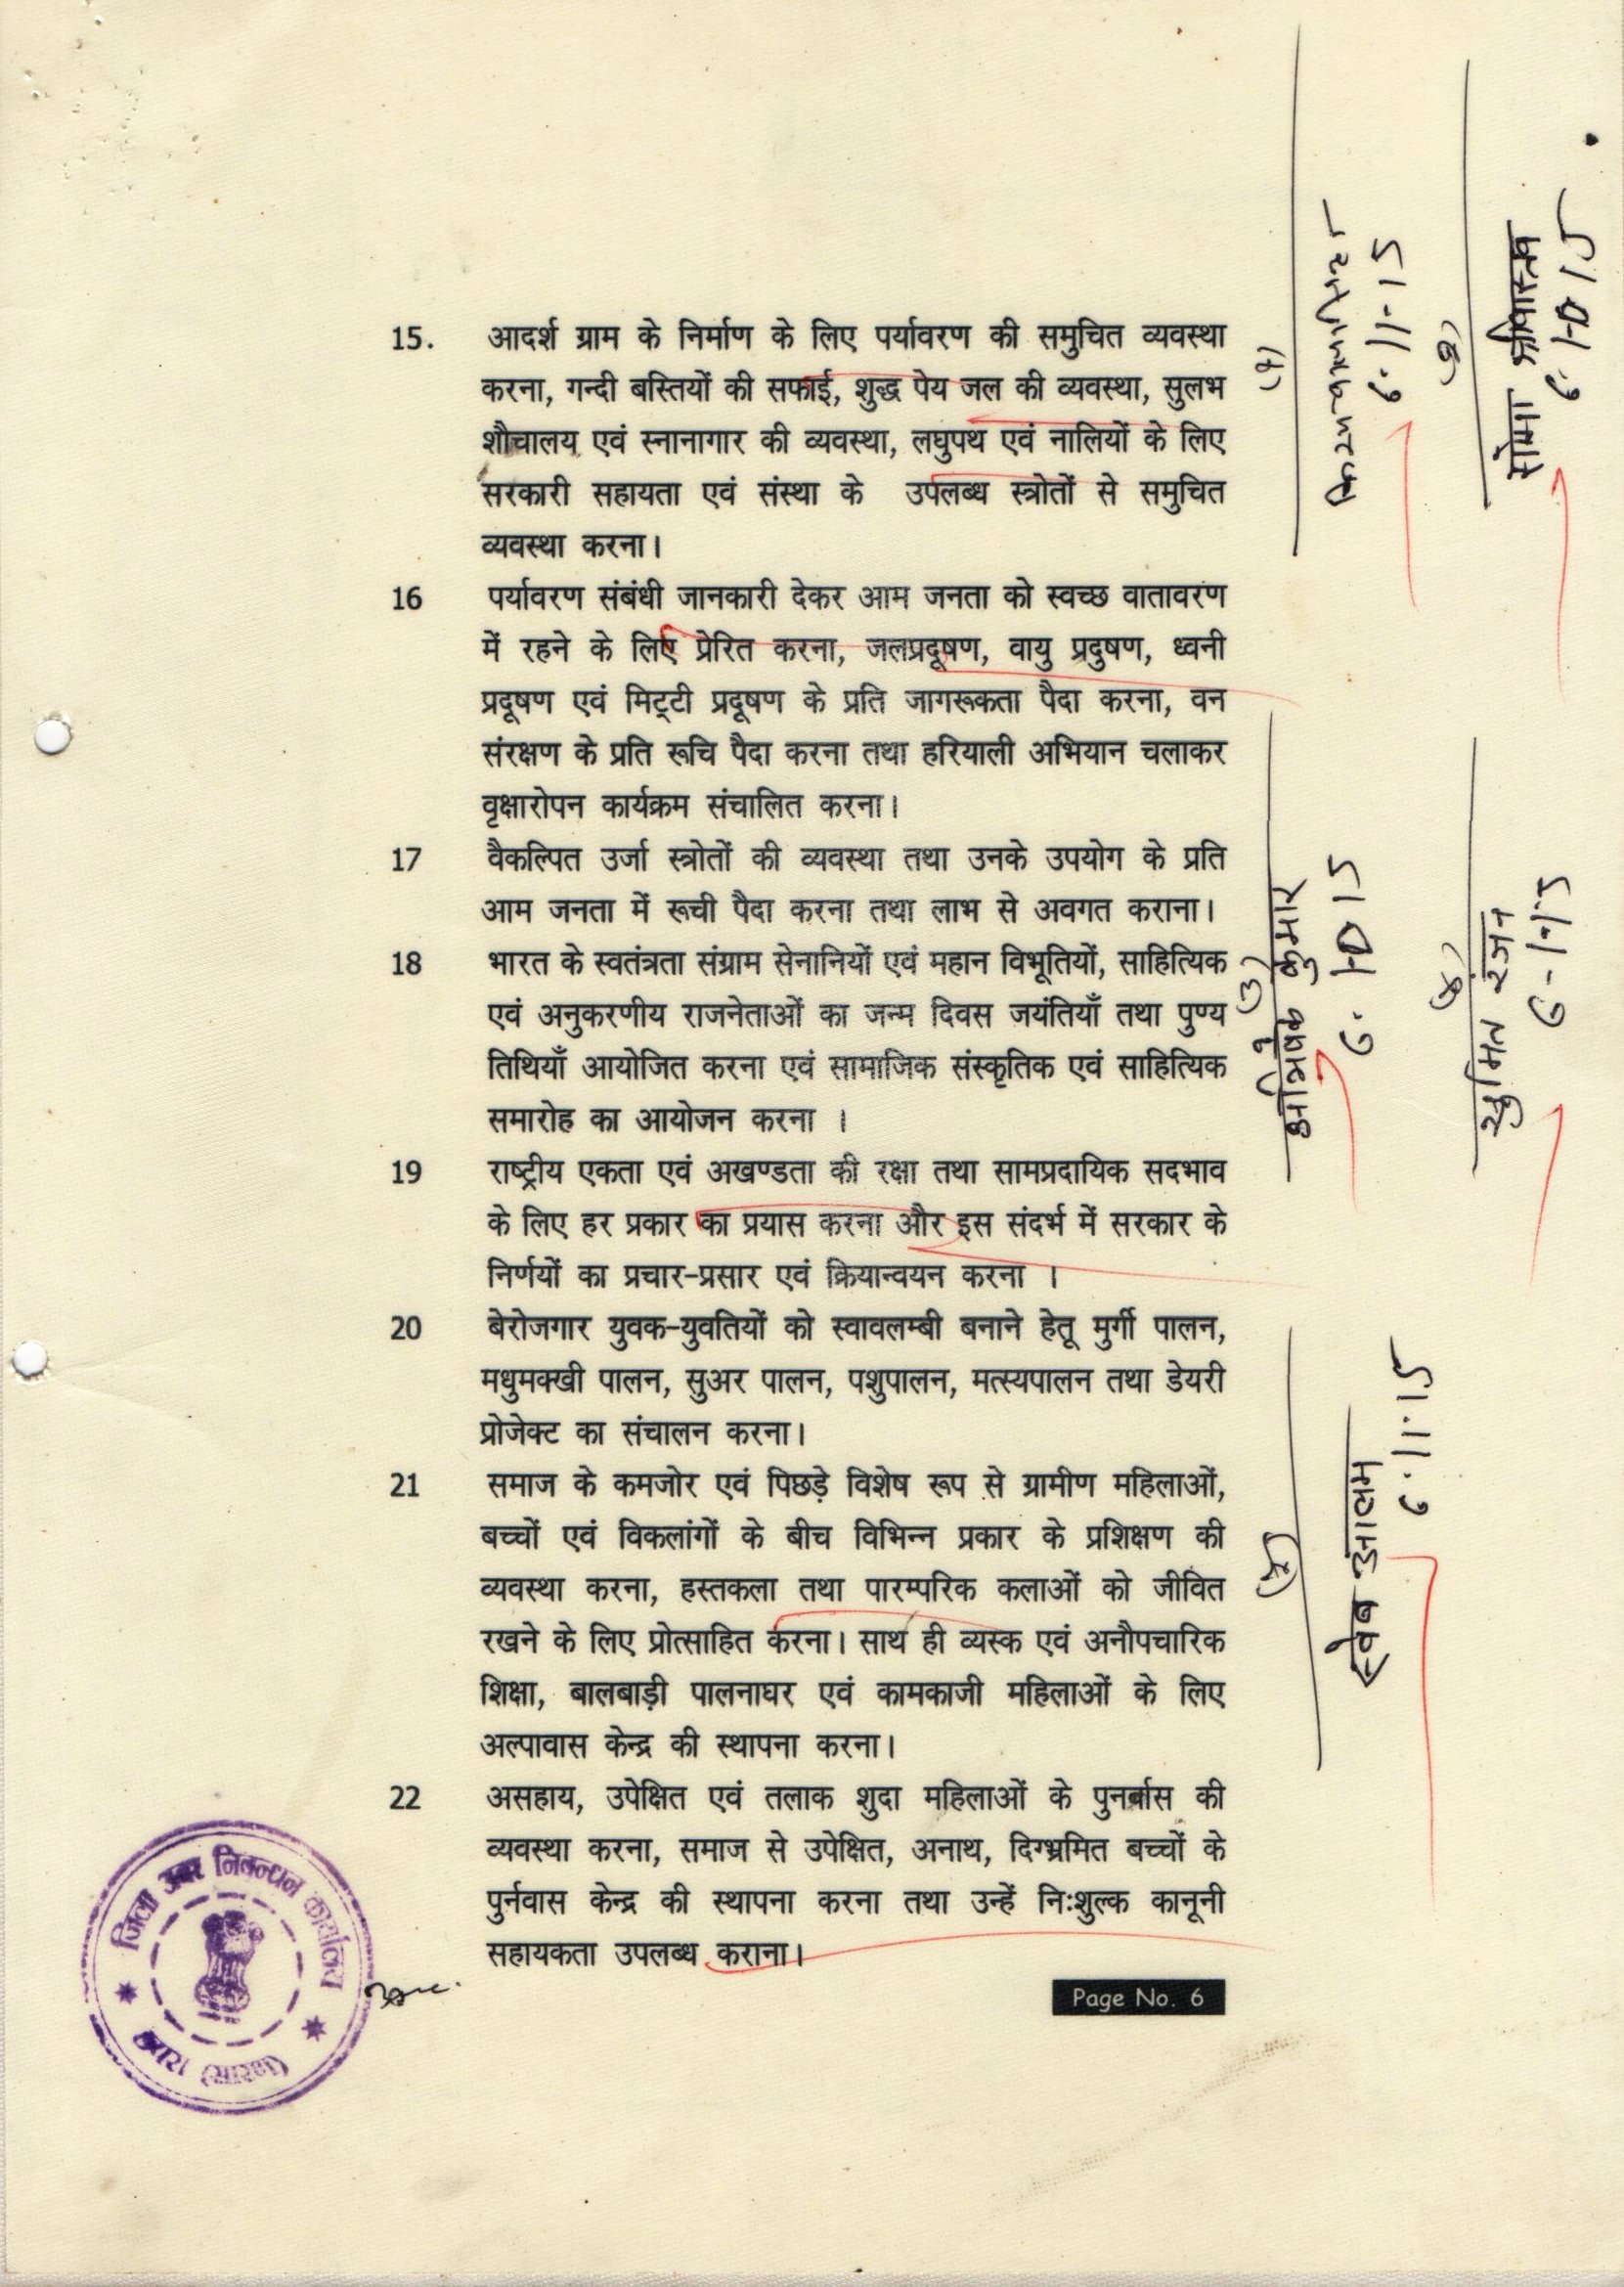 15. आदर्श ग्राम के निर्माण के लिए पर्यावरण की समुचित व्यवस्था
करना, गन्दी बस्तियों की सफाई, शुद्ध पेय जल की व्यवस्था, सुलभ
शौचालय एवं स्नानागार की व्यवस्था, लघुपथ एवं नालियों के लिए
सरकारी सहायता एवं संस्था के उपलब्ध स्त्रोतों से समुचित
व्यवस्था करना।
16 पर्यावरण संबंधी जानकारी देकर आम जनता को स्वच्छ वातावरण
में रहने के लिए प्रेरित करना, जलप्रदूषण, वायु प्रदुषण, ध्वनी
प्रदूषण एवं मिट्टी प्रदूषण के प्रति जागरूकता पैदा करना, वन
संरक्षण के प्रति रूचि पैदा करना तथा हरियाली अभियान चलाकर
वृक्षारोपन कार्यक्रम संचालित करना।
17 वैकल्पित उर्जा स्त्रोतों की व्यवस्था तथा उनके उपयोग के प्रति
आम जनता में रूची पैदा करना तथा लाभ से अवगत कराना।
18 भारत के स्वतंत्रता संग्राम सेनानियों एवं महान विभूतियों, साहित्यिक
एवं अनुकरणीय राजनेताओं का जन्म दिवस जयंतियाँ तथा पुण्य
तिथियाँ आयोजित करना एवं सामाजिक संस्कृतिक एवं साहित्यिक
समारोह का आयोजन करना ।
19 राष्ट्रीय एकता एवं अखण्डता की रक्षा तथा सामप्रदायिक सदभाव
के लिए हर प्रकार का प्रयास करना और इस संदर्भ में सरकार के
निर्णयों का प्रचार-प्रसार एवं क्रियान्वयन करना ।
20 बेरोजगार युवक-युवतियों को स्वावलम्बी बनाने हेतू मुर्गी पालन,
मधुमक्खी पालन, सुअर पालन, पशुपालन, मत्स्यपालन तथा डेयरी
प्रोजेक्ट का संचालन करना।
21 समाज के कमजोर एवं पिछड़े विशेष रूप से ग्रामीण महिलाओं,
बच्चों एवं विकलांगों के बीच विभिन्न प्रकार के प्रशिक्षण की
व्यवस्था करना, हस्तकला तथा पारम्परिक कलाओं को जीवित
रखने के लिए प्रोत्साहित करना। साथ ही व्यस्क एवं अनौपचारिक
शिक्षा, बालबाड़ी पालनाघर एवं कामकाजी महिलाओं के लिए
अल्पावास केन्द्र की स्थापना करना।
22 असहाय, उपेक्षित एवं तलाक शुदा महिलाओं के पुनर्वास की
व्यवस्था करना, समाज से उपेक्षित, अनाथ, दिग्भ्रमित बच्चों के
पुर्नवास केन्द्र की स्थापना करना तथा उन्हें निःशुल्क कानूनी
सहायकता उपलब्ध कराना।
Page No. 6
जिला अवर निबन्धन कार्यालय
छपरा (सारण)
6.11.15
सोमा श्रीवास्तव
अभिषेक कुमार
सुमित रंजन
आलम
6.11.15